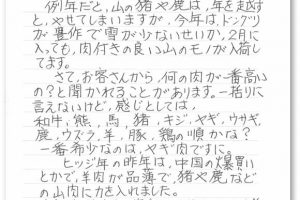 例年だと、山の猪や鹿は、年を越す
と、やせてしまいますが、今年は、ドングリ
が豊作で雪が少ないせいか、2月に
入っても、肉付きの良い山のモノが入荷し
てます。
さて、お客さんから、何の肉が一番高い
の?と聞かれることがあります。一括りに
言えないけど、感じとしては、
和牛、熊、馬、猪、キジ、ヤギ、ウサギ、
鹿、ウズラ、羊、豚、鶏の順かな?
一番希少なのは、ヤギ肉ですに。
ヒツジ年の昨年は、中国の爆買い
とかで、羊肉が品薄で、猪や鹿など
の山肉に力を入れました。